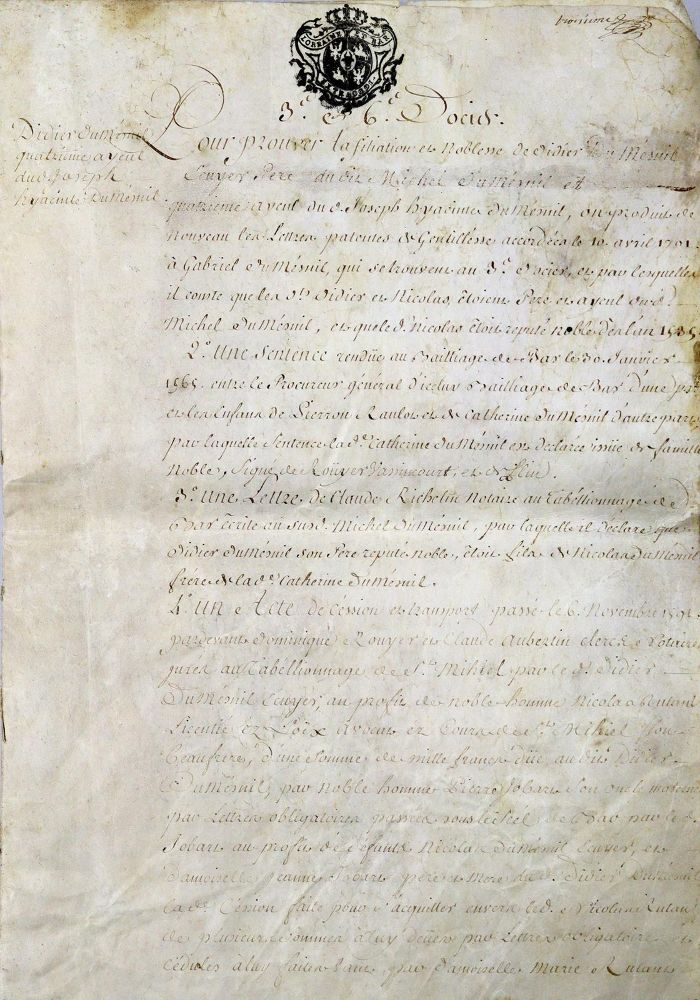 troisieme
LORRAINE ET BAR
3.e et 6.e Docier.
Didier DuMénil
quatrieme ayeul
du d. Joseph
hyacinte DuMénil
Pour prouver la filiation et Noblesse de Didier Du Ménil
Ecuyer Pere du dit Michel DuMénil et
quatrieme ayeul du d. Joseph hyacinte duMénil, on produit de
nouveau les Lettres patentes de Gentillesse accordées le 10 avril 1701
à Gabriel DuMénil, qui se trouvent au 3.e Docier, et par lesquelles
il conste que les d.ts Didier et Nicolas, étoient Pere et ayeul du d.
Michel DuMénil, et que le d. Nicolas étoit reputé noble dez l'an 1535
2.o Une Sentence rendüe au Bailliage de Bar le 30 Janvier
1565. entre le Procureur général d'icelui Bailliage de Bar d'une part
et les Enfans de Pierron Raulot et de Catherine DuMénil d'autre part
par laquelle Sentence la d.e Catherine DuMénil est declarée issüe de famille
noble, Signé de Rouyer et
3.o Une Lettre de Claude Richelin Notaire au Tabéllionnage de
Bar Ecrite au susd. Michel DuMénil, par laquelle il declare que
Didier DuMénil son Pere reputé noble, étoit fils de Nicolas DuMénil
frére de la d.e Catherine DuMénil.
4.o Un Acte de Céssion et transport passé le 6. Novembre
pardevant Dominique Rouyer et Claude Aubertin clercs Notaires
jurez au Tabéllionnage de S.t Mihiel par le d. Didier
DuMénil Ecuyer, au profit de noble homme Nicolas Rutant
Licentié ez Loix avocat ez Cours de S.t Mihiel son
Beaufrere, d'une somme de mille francs düe au dit Didier
DuMénil, par noble homme Pierre Jobart son oncle maternel
par Lettres obligatoires passées sous le scel de Bar par le d.
Jobart au profit de défunts Nicolas DuMénil Ecuyer, et
Damoiselle Jeanne Jobart pere et mere du d. Didier DuMénil
la d.e Céssion faite pour s'acquiller envers le d. Nicolas Rutant
de plusieurs sommes à luy deües par Lettres obligatoires et
Cédules à luy faites tant par Damoiselle Marie Rutant